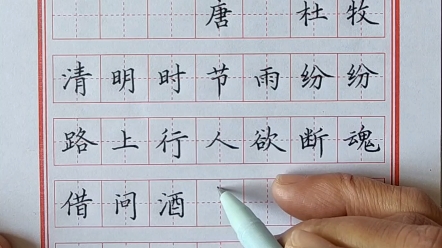 唐 杜牧
清明时节雨纷纷
路上行人欲断魂
借问酒